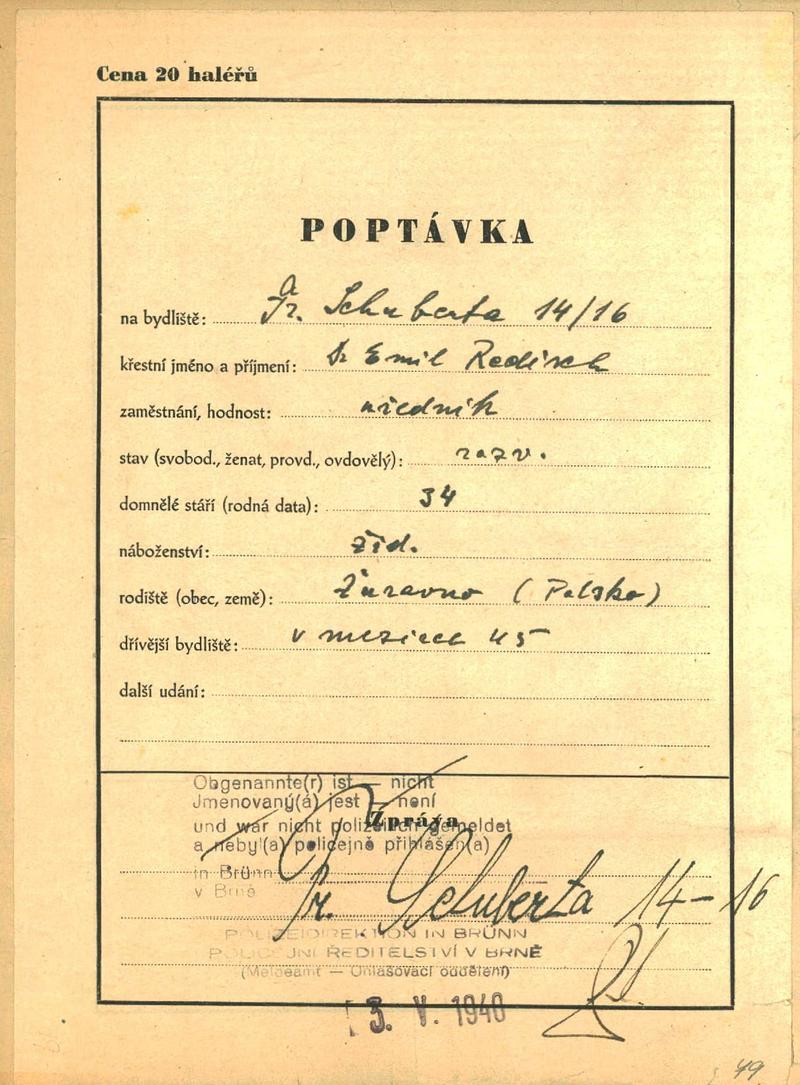 Cena 20 haléřů
POPTÁVKA
na bydliště: Fr. Schuberta 14/16
křestní jméno a příjmení: Dr Emil Redisch
zaměstnání, hodnost: úředník
stav (svobod., ženat, provd., ovdovělý): rozv.
domnělé stáří (rodná data): 34
náboženství: žid.
rodiště (obec, země): Žuravno (Polsko)
dřívější bydliště: v
další udání:
Obgenannte(r) ist — nicht
Jmenovaný(á) jest — není
Zpráva
und war nicht polizeilich gemeldet
a nebyl(a) policejně přihlášen(a)
in Brünn
v Brně
Fr. Schuberta 14-16
POLIZEIDIREKTION IN BRÜNN
POLICEJNÍ ŘEDITELSTVÍ V BRNĚ
(Meldeamt — Ohlašovací oddělení)
3. V. 1940
49